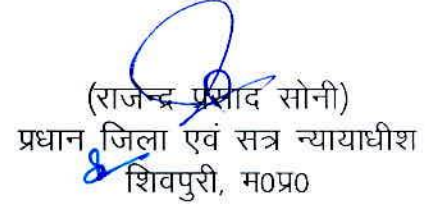 (राजेन्द्र प्रसाद सोनी)
प्रधान जिला एवं सत्र न्यायाधीश
शिवपुरी, म0प्र0